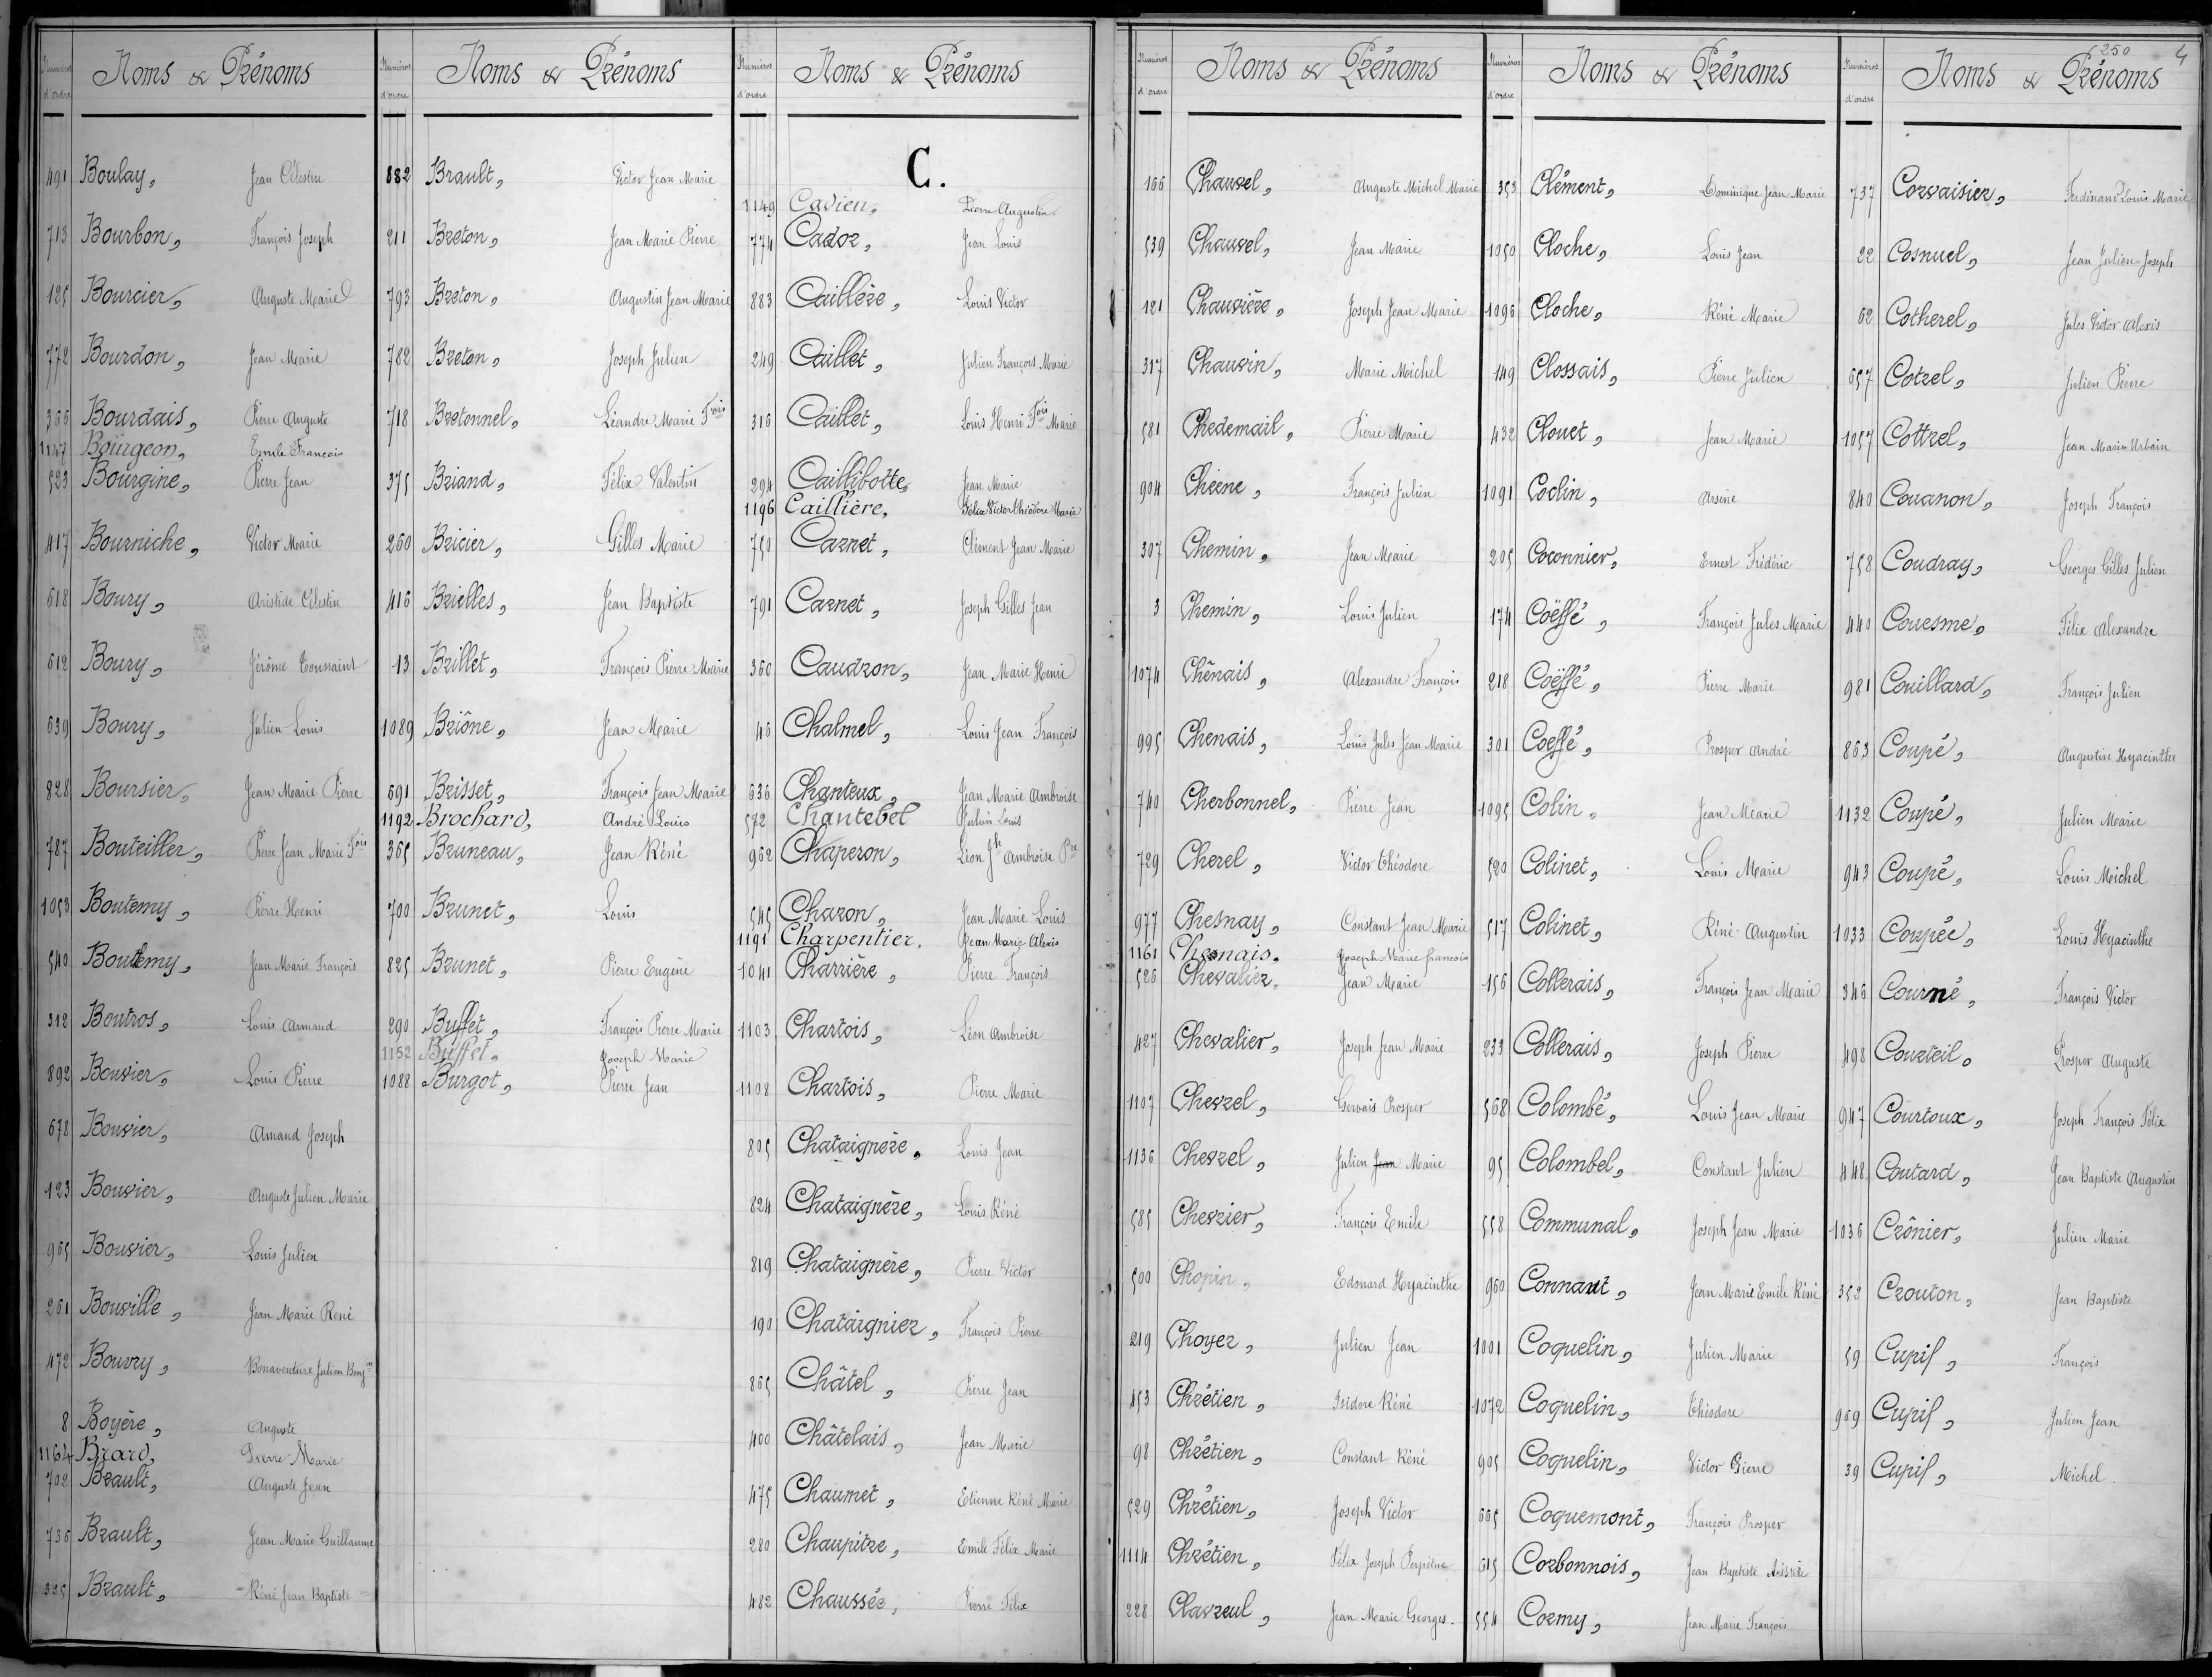 Numéros d'ordre Noms & Prénoms
491 Boulay, Jean Célestin
713 Bourbon, François Joseph
125 Bourcier, Auguste Marie
772 Bourdon, Jean Marie
366 Bourdais, Pierre Auguste
1147 Bourgeon, Emile François
523 Bourgine, Pierre Jean
417 Bourniche, Victor Marie
618 Boury, Aristide Célestin
612 Boury, Jérôme Toussaint
639 Boury, Julien Louis
828 Boursier, Jean Marie Pierre
787 Bouteiller, Pierre Jean Marie Fois
1053 Boutemy, Pierre Henri
540 Boutemy, Jean Marie François
312 Boutros, Louis Armand
892 Bouvier, Louis Pierre
678 Bouvier, Amand Joseph
123 Bouvier, Auguste Julien Marie
965 Bouvier, Louis Julien
261 Bouville, Jean Marie René
472 Bouvry, Bonaventure Julien Benjin
8 Boyère, Auguste
1164 Brard, Pierre Marie
702 Brault, Auguste Jean
736 Brault, Jean Marie Guillaume
325 Brault, Réné Jean Baptiste
Numéros d'ordre Noms & Prénoms
882 Brault, Victor Jean Marie
211 Breton, Jean Marie Pierre
793 Breton, Augustin Jean Marie
782 Breton, Joseph Julien
718 Bretonnel, Léandre Marie Fois
375 Briand, Félix Valentin
260 Bricier, Gilles Marie
416 Brielles, Jean Baptiste
13 Brillet, François Pierre Marie
1089 Briône, Jean Marie
691 Brisset, François Jean Marie
1192 Brochard, André Louis
365 Bruneau, Jean Réné
700 Brunet, Louis
825 Brunet, Pierre Eugène
290 Buffet, François Pierre Marie
1152 Buffet, Joseph Marie
1088 Burgot, Pierre Jean
Numéros d'ordre Noms & Prénoms
C.
1149 Cadieu, Pierre Augustin
774 Cador, Jean Louis
883 Caillère, Louis Victor
249 Caillet, Julien François Marie
316 Caillet, Louis Henri Fois Marie
294 Caillibotte, Jean Marie
1196 Caillière, Félix Victor Théodore Marie
750 Carnet, Clément Jean Marie
791 Carnet, Joseph Gilles Jean
360 Caudron, Jean Marie Henri
46 Chalmel, Louis Jean François
636 Chanteux, Jean Marie Ambroise
572 Chantebel Julien Louis
962 Chaperon, Léon Jh Ambroise Pre
545 Charon, Jean Marie Louis
1191 Charpentier, Jean Marie Alexis
1041 Charrière, Pierre François
1103 Chartois, Léon Ambroise
1108 Chartois, Pierre Marie
805 Chataignère, Louis Jean
824 Chataignère, Louis Réné
819 Chataignère, Pierre Victor
190 Chataignier, François Pierre
865 Châtel, Pierre Jean
400 Châtelais, Jean Marie
475 Chaumet, Etienne Réné Marie
280 Chaupitre, Emile Félix Marie
482 Chaussée, Pierre Félix
Numéros d'ordre Noms & Prénoms
166 Chauvel, Auguste Michel Marie
539 Chauvel, Jean Marie
121 Chauvière, Joseph Jean Marie
317 Chauvin, Marie Michel
581 Chedemail, Pierre Marie
904 Chêene, François Julien
307 Chemin, Jean Marie
3 Chemin, Louis Julien
1074 Chênais, Alexandre François
995 Chenais, Louis Jules Jean Marie
740 Cherbonnel, Pierre Jean
729 Cherel, Victor Théodore
977 Chesnay, Constant Jean Marie
1161 Chesnais, Joseph Marie François
526 Chevalier, Jean Marie
427 Chevalier, Joseph Jean Marie
1107 Chevrel, Gervais Prosper
1136 Chevrel, Julien Jean Marie
585 Chevrier, François Emile
500 Chopin, Edouard Hyacinthe
219 Choyer, Julien Jean
453 Chrétien, Isidore Réné
98 Chrétien, Constant Réné
529 Chrétien, Joseph Victor
1114 Chrétien, Félix Joseph Perpétue
228 Clavreul, Jean Marie Georges.
Numéros d'ordre Noms & Prénoms
353 Clément, Dominique Jean Marie
1050 Cloche, Louis Jean
1096 Cloche, Réné Marie
149 Clossais, Pierre Julien
432 Clouet, Jean Marie
1091 Coclin, Arsène
205 Coconnier, Ernest Frédéric
174 Coëffé, François Jules Marie
218 Coëffé, Pierre Marie
301 Coeffé, Prosper André
1095 Colin, Jean Marie
520 Colinet, Louis Marie
517 Colinet, Réné Augustin
156 Collerais, François Jean Marie
233 Collerais, Joseph Pierre
568 Colombé, Louis Jean Marie
95 Colombel, Constant Julien
558 Communal, Joseph Jean Marie
960 Connant, Jean Marie Emile Réné
1001 Coquelin, Julien Marie
1072 Coquelin, Théodore
905 Coquelin, Victor Pierre
665 Coquemont, François Prosper
615 Corbonnois, Jean Baptiste Aristide
554 Cormy, Jean Marie François
250 4
Numéros d'ordre Noms & Prénoms
737 Corvaisier, Ferdinand Louis Marie
22 Cosnuel, Jean Julien Joseph
62 Cotherel, Jules Victor Alexis
657 Cotrel, Julien Pierre
1057 Cottrel, Jean Marie Urbain
840 Couanon, Joseph François
758 Coudray, Georges Gilles Julien
440 Couesme, Félix Alexandre
981 Couillard, François Julien
863 Coupé, Augustin Hyacinthe
1132 Coupé, Julien Marie
943 Coupé, Louis Michel
1033 Coupée, Louis Hyacinthe
346 Courné, François Victor
498 Courteil, Prosper Auguste
947 Courtoux, Joseph François Félix
448 Coutard, Jean Baptiste Augustin
1036 Crônier, Julien Marie
352 Crouton, Jean Baptiste
59 Cupif, François
969 Cupif, Julien Jean
39 Cupif, Michel.